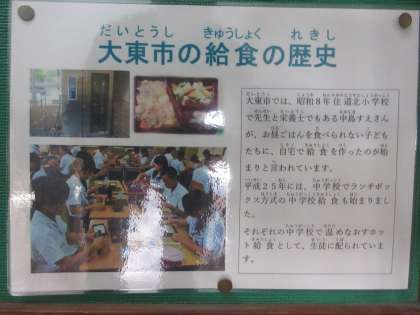 だいとうし きゅうしょく れきし
大東市の給食の歴史
大東市では、昭和8年住道北小学校
で先生と栄養士でもある中島すえさん
が、お昼ごはんを食べられない子ども
たちに、自宅で給食を作ったのが始
まりと言われています。
平成25年には、中学校でランチボッ
クス方式の中学校給食も始まりまし
た。
それぞれの中学校で温めなおすホット
給食として、生徒に配られています。